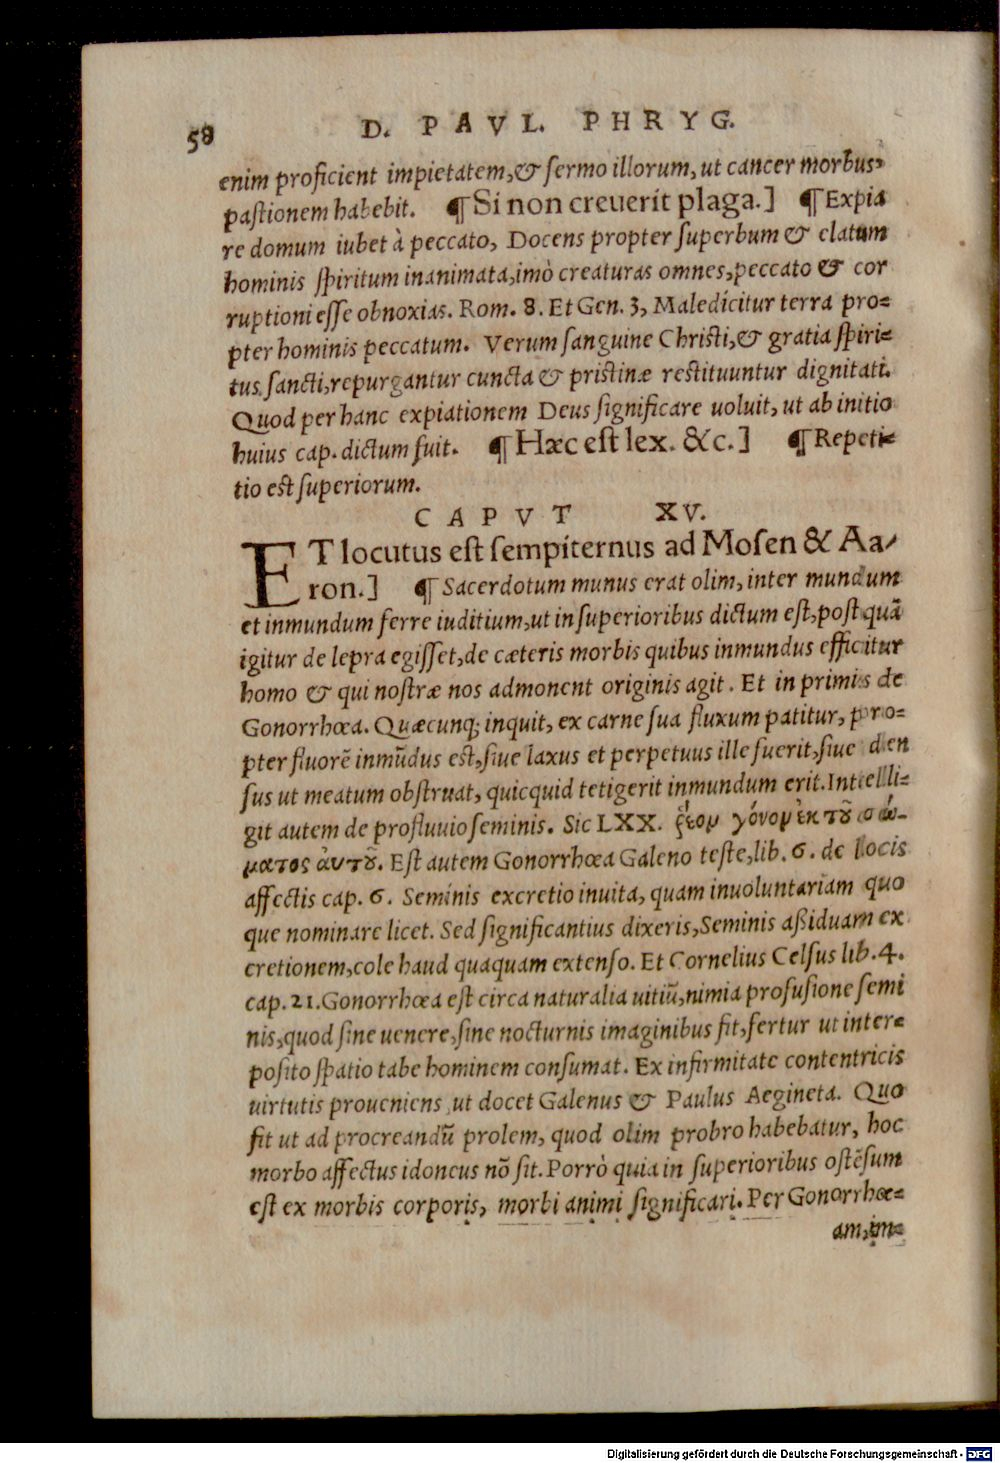 58
D. PAVL. PHRYG.
enim proficient impietatem, & sermo illorum, ut cancer morbus,
pastionem habebit. ¶ Si non creuerit plaga.] ¶ Expia
re domum iubet à peccato, Docens propter superbum & elatum
hominis spiritum inanimata, imò creaturas omnes, peccato & cor
ruptioni esse obnoxias. Rom. 8. Et Gen. 3, Maledicitur terra pro-
pter hominis peccatum. Verum sanguine Christi, & gratia spiri-
tus sancti, repurgantur cuncta & pristinæ restituuntur dignitati.
Quod per hanc expiationem Deus significare uoluit, ut ab initio
huius cap. dictum fuit. ¶ Hæc est lex. &c.] ¶ Repeti-
tio est superiorum.
CAPVT XV.
ET locutus est sempiternus ad Mosen & Aa-
ron.] ¶ Sacerdotum munus erat olim, inter mundum
et inmundum ferre iuditium, ut in superioribus dictum est, post quã
igitur de lepra egisset, de cæteris morbis quibus inmundus efficitur
homo & qui nostræ nos admonent originis agit. Et in primis de
Gonorrhœa. Quæcunq; inquit, ex carne sua fluxum patitur, pro-
pter fluorẽ inmũdus est, siue laxus et perpetuus ille fuerit, siue den
sus ut meatum obstruat, quicquid tetigerit inmundum erit. Intelli-
git autem de profluuio seminis. Sic LXX. ῥέομ γόνομ ἐκ τȣ͂ σώ-
ματος ἀυτȣ͂. Est autem Gonorrhœa Galeno teste, lib. 6. de locis
affectis cap. 6. Seminis excretio inuita, quam inuoluntariam quo
que nominare licet. Sed significantius dixeris, Seminis aßiduam ex
cretionem, cole haud quaquam extenso. Et Cornelius Celsus lib. 4.
cap. 21. Gonorrhœa est circa naturalia uitiũ, nimia profusione semi
nis, quod sine uenere, sine nocturnis imaginibus fit, fertur ut inter-
posito spatio tabe hominem consumat. Ex infirmitate contentricis
uirtutis proueniens, ut docet Galenus & Paulus Aegineta. Quo
fit ut ad procreandũ prolem, quod olim probro habebatur, hoc
morbo affectus idoneus nõ sit. Porrò quia in superioribus ostẽsum
est ex morbis corporis, morbi animi significari. Per Gonorrhœ-
am, im-
Digitalisierung gefördert durch die Deutsche Forschungsgemeinschaft - DFG